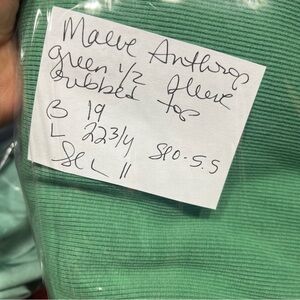 Maeve Anthrop
green 1/2 sleeve
ribbed top
B 19
L 22 3/4
SL 11